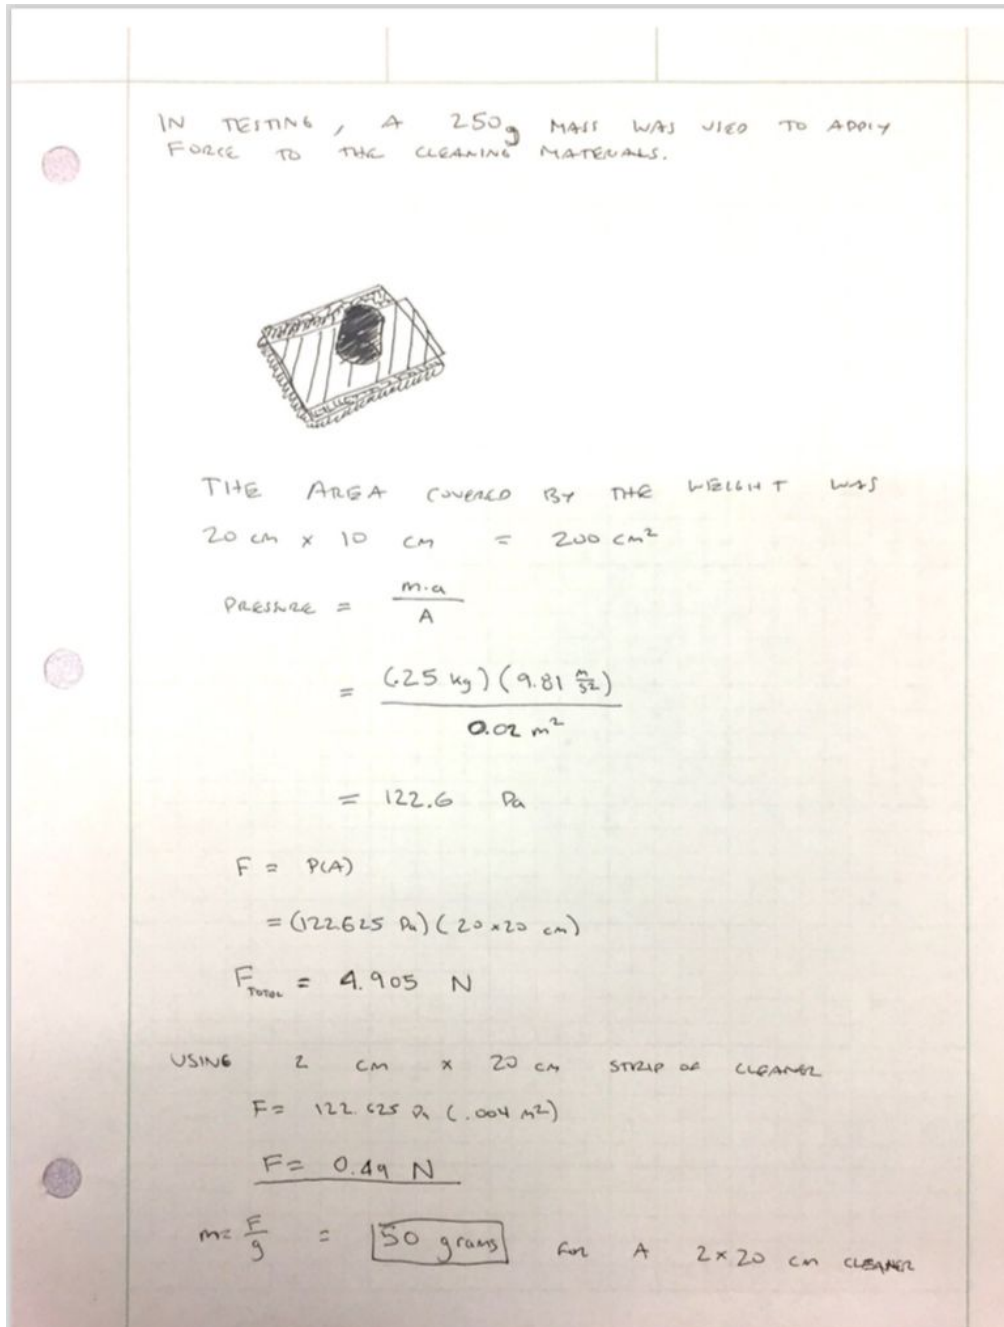 IN TESTING, A 250g MASS WAS USED TO APPLY
FORCE TO THE CLEANING MATERIALS.
THE AREA COVERED BY THE WEIGHT WAS
20 cm x 10 cm = 200 cm²
PRESSURE = m·a / A
= (.25 kg)(9.81 m/s²) / 0.02 m²
= 122.6 Pa
F = P(A)
= (122.625 Pa)(20×20 cm)
F_TOTAL = 4.905 N
USING 2 cm x 20 cm STRIP OF CLEANER
F = 122.625 Pa (.004 m²)
F = 0.49 N
m = F/g = 50 grams FOR A 2×20 cm CLEANER